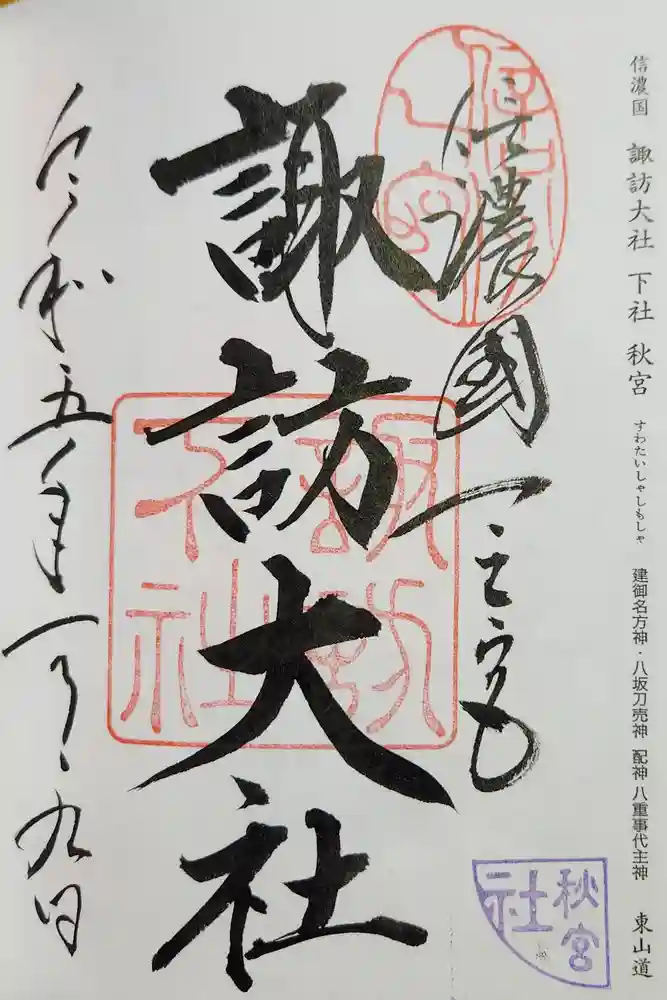 信濃国 諏訪大社 下社 秋宮 すわたいしゃしもしゃ 建御名方神・八坂刀売神 配神 八重事代主神 東山道
信濃國一之宮
諏訪大社
令和五年一月九日
信州一宮
諏訪
下社
秋宮
社